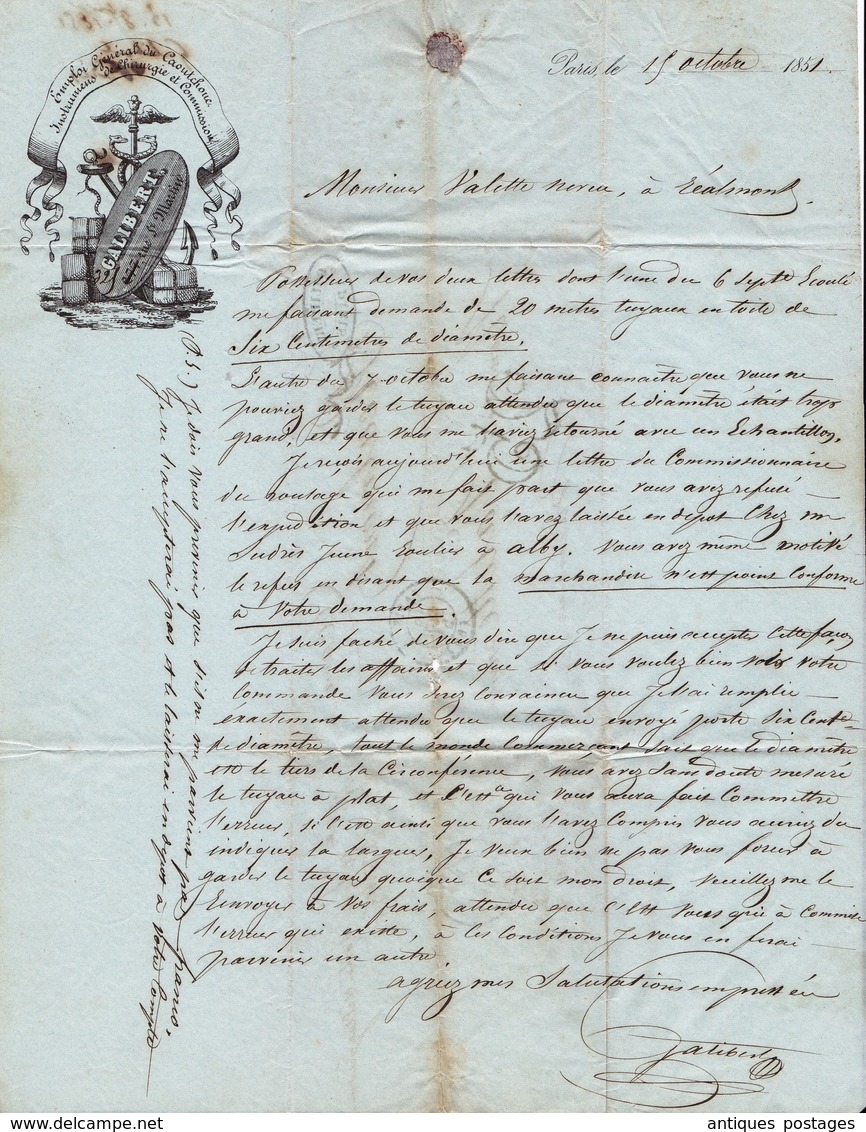 Emploi Général du Caoutchouc
Instrumens de Chirurgie et Commission
GALIBERT,
rue St Martin
Paris, le 15 octobre 1851.
Monsieur Valette neveu, à Réalmont
Possesseur de vos deux lettres dont l'une du 6 Septbre Ecoulé
me faisant demande de 20 metres tuyaux en toile de
Six Centimetres de diamètre.
L'autre du 7 octobre me faisant connaitre que vous ne
pouviez garder le tuyau attendu que le diamètre était trop
grand, et que vous me l'aviez retourné avec un Echantillon.
Je reçois aujourd'hui une lettre du Commissionnaire
du roulage qui me fait part que vous avez refusé
l'expédition et que vous l'avez laissée en depot Chez mr
Sudrès Jeune roulier à alby. Vous avez même motivé
le refus en disant que la marchandise n'est point Conforme
à Votre demande.
Je suis faché de vous dire que Je ne puis accepter Cette façon
de traiter les affaires et que si vous voulez bien voir votre
Commande vous serez convaincu que Je l'ai remplie
éxactement attendu que le tuyau envoyé porte Six Centes
de diamètre, tout le monde Commerçant sait que le diamètre
est le tiers de la Circonférence, vous avez sans doute mesuré
le tuyau à plat, et c'est ce qui vous aura fait Commettre
l'erreur, si c'est ainsi que vous l'avez Compris vous auriez du
indiquer la largeur, Je veux bien ne pas vous forcer à
garder le tuyau quoique Ce soit mon droit, veuillez me le
Renvoyer à vos frais, attendu que C'est vous qui a Commis
l'erreur qui existe, à Ces Conditions Je vous en ferai
parvenir un autre
agréez mes Salutations empressées
Galibert
(P.S.) Je dois vous prévenir que s'il ne me parvient pas franco,
Je ne l'accepterai pas et le laisserai en depot à votre Compte
antiques postages